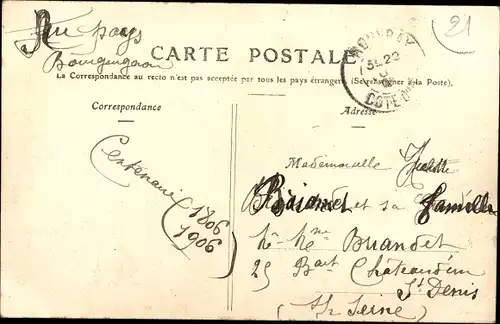 21
Au pays
Bourguignon
CARTE POSTALE
La Correspondance au recto n'est pas acceptée par tous les pays étrangers (Se renseigner à la Poste).
COTE D'OR
Correspondance
Adresse
Centenaire
(1806
1906)
Mademoiselle Juliette
et sa famille
Briandet
25 Bart Châteaudun
St Denis
Seine)